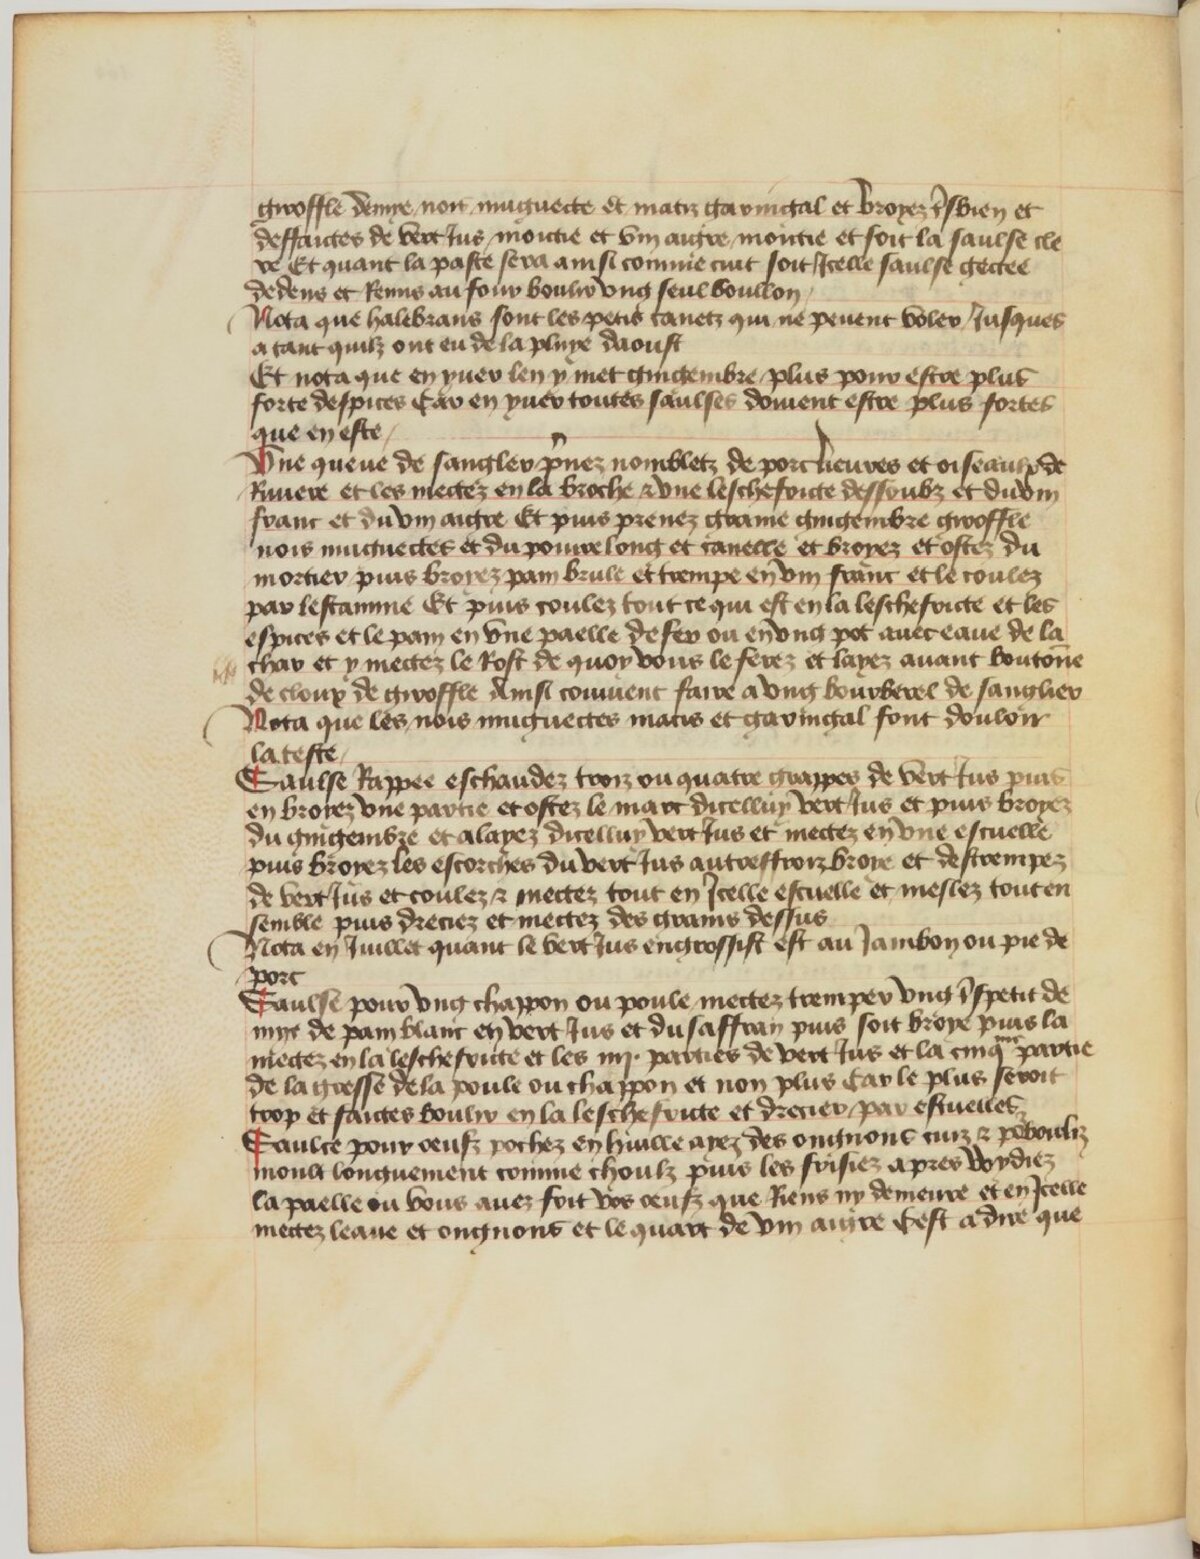 giroffle demye noit muguecte et matiz garingal et broyez tsbien et
deffaictes de vert Jus moictie et vin aigre moictie et soit la saulse cle
re Et quant la paste sera ainsi comme cuit soit Jcelle saulse gectee
dedens et Remis au four boulir vng seul boullon
Nota que halebrans sont les petis canetz qui ne peuent voler Jusques
a tant quilz ont eu de la pluye daoust
Et nota que en yuer len y met gingembre plus pour estre plus
forte despices Car en yuer toutes saulses doiuent estre plus fortes
que en este
Vne queue de sangler pnez nombletz de porc lieures et oiseaulx de
Riuiere et les mectez en la broche & vne leschefricte dessoubz et du vin
franc et du vin aigre Et puis prenez graine gingembre grooffle
nois muguectes et du poiure long et canelle et broyez et ostez du
mortier puis broyez pain brule et trempe en vin franc et le coulez
par lestamine Et puis coulez tout ce qui est en la leschefricte et les
espices et le pain en vne paelle de fer ou en vng pot auec eaue de la
char et y mectez le Rost de quoy vous le ferez et layez auant boutonne
de cloux de giroffle Ainsi comment faire a vng bourberel de sanglier
Nota que les nois muguectes matis et garingal font douloir
la teste
Saulse Rappee eschaudez troiz ou quatre grappes de vert Jus puis
en broyez vne partie et ostez le marc dicelluy vert Jus et puis broyez
du gingembre et alayez dicelluy vert Jus et mectez en vne escuelle
puis broyez les escorches du vert Jus autreffoiz broye et destrempez
de vert Jus et coulez & mectez tout en Jcelle escuelle et meslez tout en
semble puis dreciez et mectez des grains dessus
Nota en Juillet quant le vert Jus engrossist est au Jambon ou pie de
porc
Saulse pour vng chappon ou poule mectez tremper vng tspetit de
mye de pain blanc en vert Jus et du saffran puis soit broye puis la
mectez en la leschefricte et les iiij. parties de vert Jus et la cinqme partie
de la gresse de la poule ou chappon et non plus Car le plus seroit
trop et faictes boulir en la leschefricte et drecier par escuelles
Saulce pour oeufz pochez en huille ayez des ongnons cuiz & pebouliz
moult longuement comme choulz puis les frisiez apres voydiez
la paelle ou vous auez frit vos oeufz que Riens ny demeure et en Jcelle
mectez leaue et ongnons et le quart de vin aigre Cest a dire que